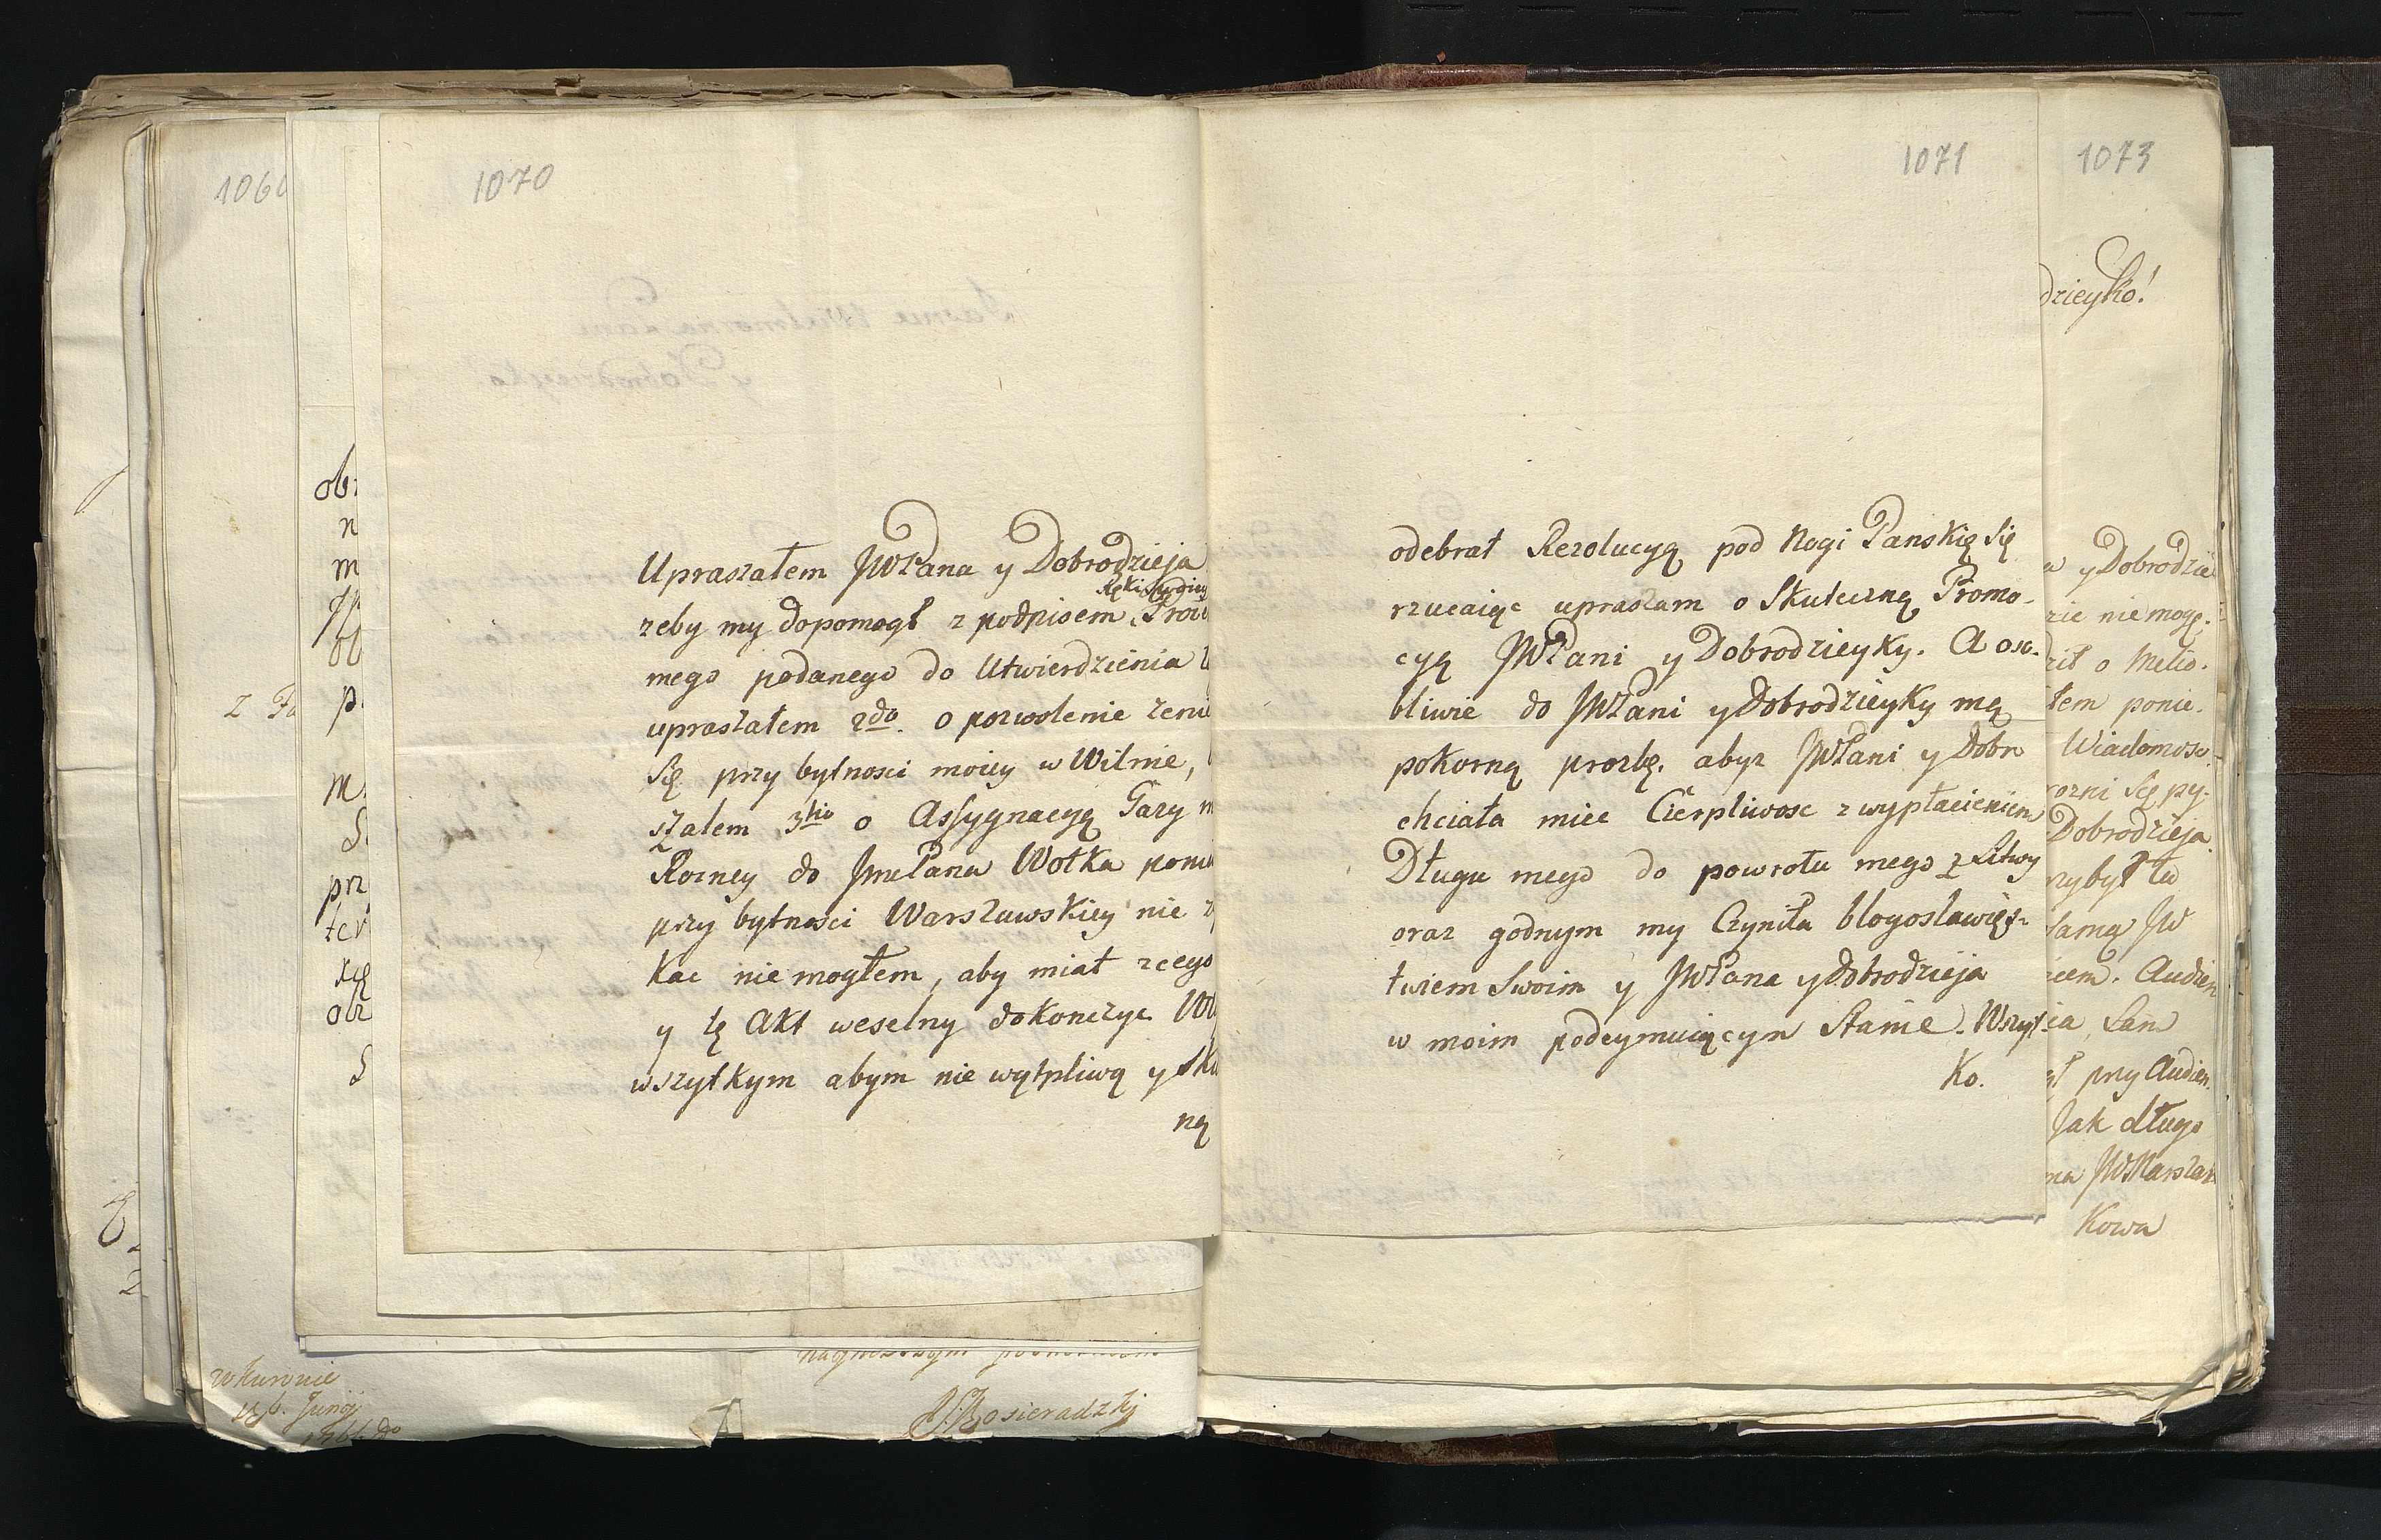 1070
Upraszałem JWPana y Dobrodzieja
zeby my dopomogł z podpisem
mego podanego do Utwierdzienia
upraszałem 2do. o pozwolenie zeni
Się przy bytnosci moiey w Wilnie,
szalem 3tio o Assygnacyą Gazy
Roczney do Jmc Pana Wolka
przy bytnosci Warszawskiey nie
Kac nie mogłem, aby miał zczego
y tę Akt weselny dokonczyc
wszytkym abym nie wątpliwą y sku
ną
1071
odebrał Rezolucyą pod Nogi Panskię Się
rzucaiąc upraszam o Skuteczną Promo-
cyą JWPani y Dobrodzieyky. A oso-
bliwie do JWPani y Dobrodzieyky mą
pokorną prozbę. abyz JWPani y Dobr
chciała miec Cierpliwosc z wypłacieniem
Długu mego do powrotu mego z Litwy
oraz godnym my Czyniła blogosławięs-
twiem Swoim y JWPana y Dobrodzieja
w moim podeymuiącym Stanie. Wszyt-
Ko.
1073
dzieyko!
y Dobrodzie
zie nie mogę.
ził o Melio-
łem ponie-
Wiadomosc
rozni Się py-
Dobrodzieja
rzybył tu
samą JW
Audien
ia Sam
przy Audien.
Jak długo
na JWMarszał-
Kowa
106
z
obr
n
m
p
m
S
prz
ter
xię
S
w Kurowie
Junij
Kosieradzkj